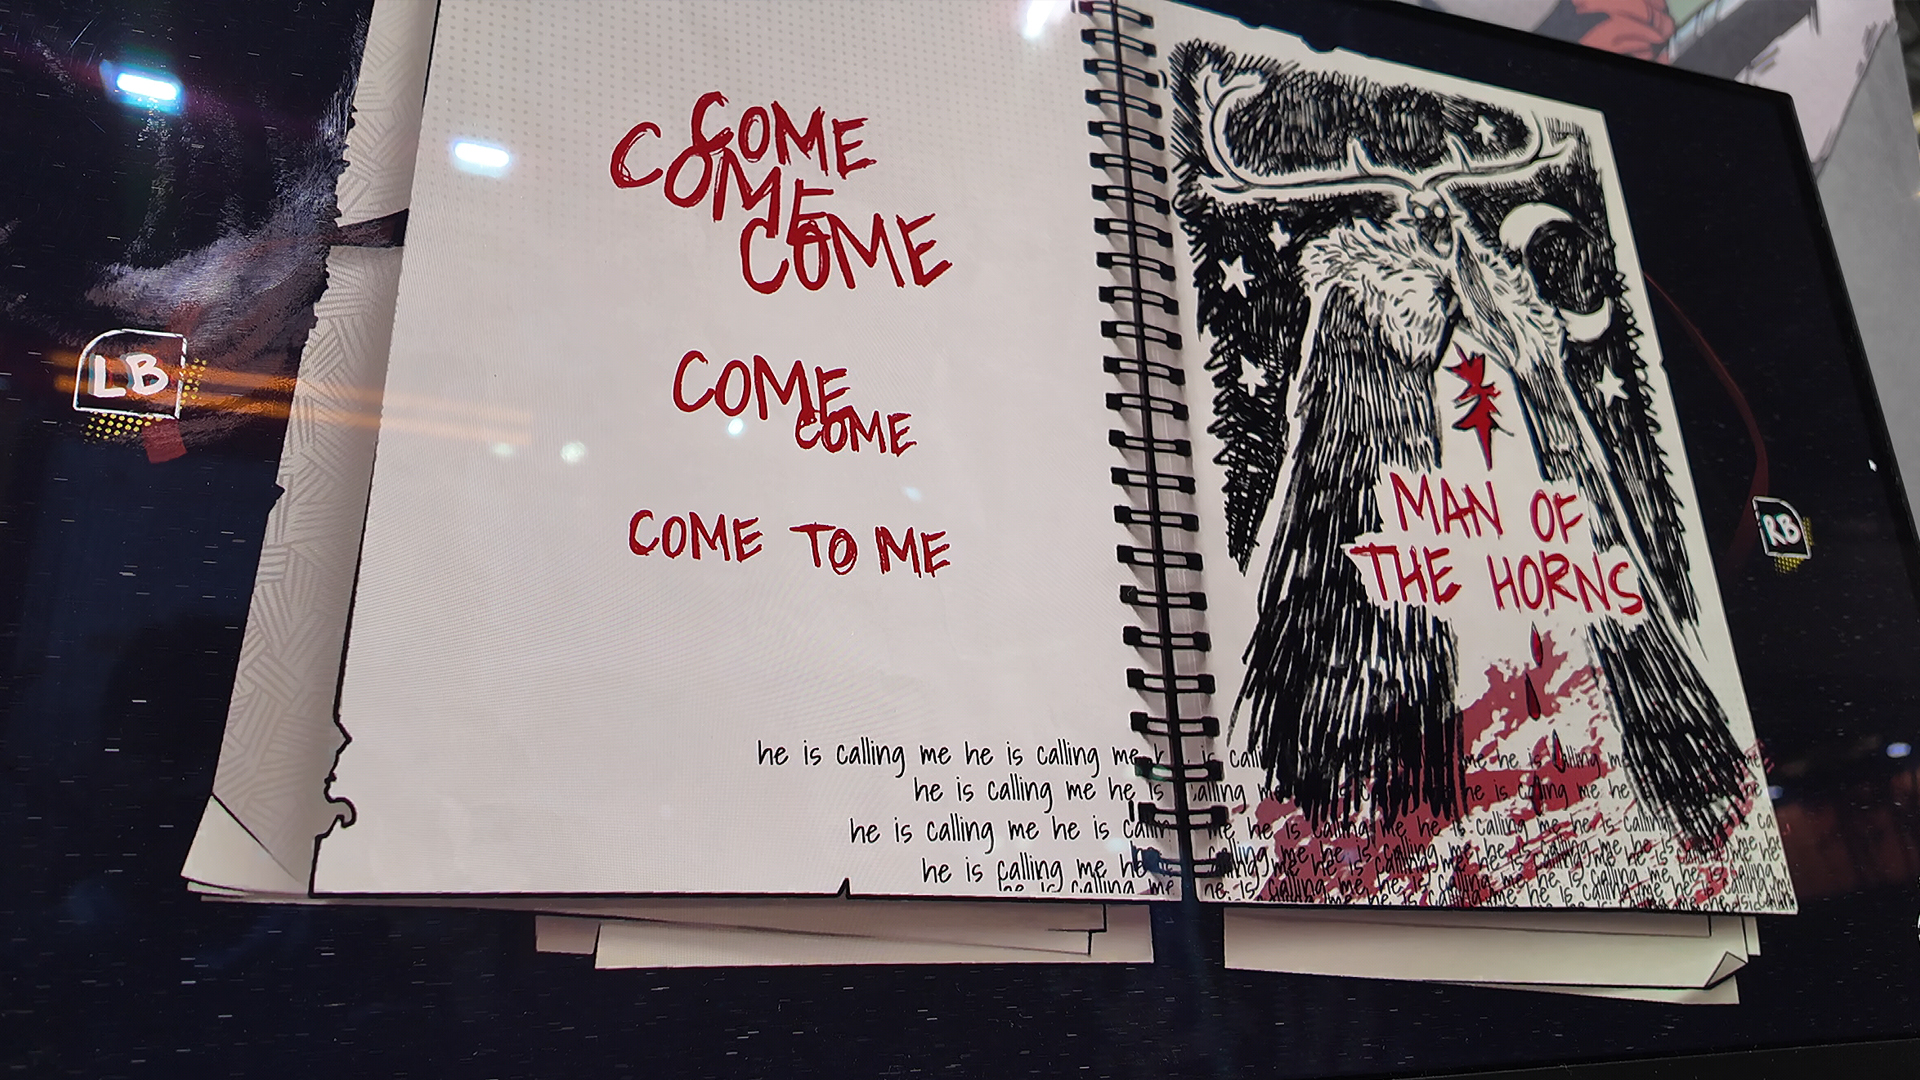 COME
COME
COME
COME
COME
COME TO ME
MAN OF
THE HORNS
LB
RB
he is calling me he is calling me
he is calling me he is calling me
he is calling me he is calling me he is calling me he is calling
he is calling me he is calling me he is calling me he is
he is calling me he is calling me he is calling me he is calling me